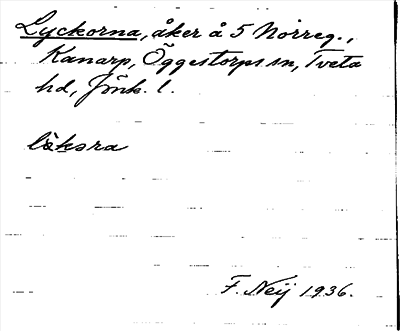 Lyckorna, åker å 5 Norreg.,
Kanarp, Öggestorps sn, Tveta
hd, Jönk. l.
lẁkɘra
F. Neij 1936.